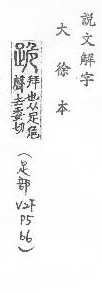 説文解字
大徐本
跪 拜也从足危
聲去委切
（足部 V2下 P5 66）